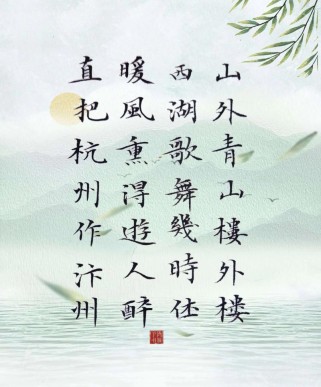 山外青山樓外樓
西湖歌舞幾時休
暖風熏得遊人醉
直把杭州作汴州